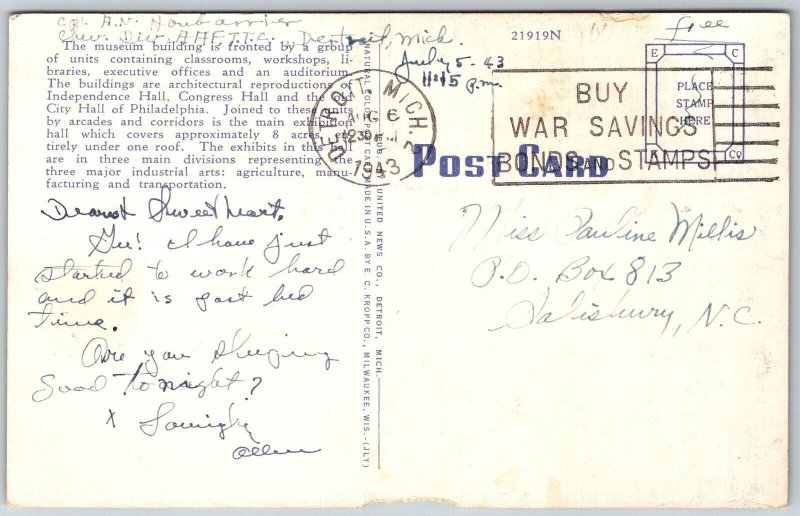 Cpl. A.N. Noubarrier
Chev. Div. AAFTTC. Detroit, Mich.
July 5 - 43
11:15 p.m.
free
21919N
The museum building is fronted by a group
of units containing classrooms, workshops, li-
braries, executive offices and an auditorium.
The buildings are architectural reproductions of
Independence Hall, Congress Hall and the Old
City Hall of Philadelphia. Joined to these units
by arcades and corridors is the main exhibition
hall which covers approximately 8 acres, en-
tirely under one roof. The exhibits in this hall
are in three main divisions representing the
three major industrial arts: agriculture, manu-
facturing and transportation.
DETROIT, MICH. 2
6
1943
BUY
WAR SAVINGS
BONDS AND STAMPS
E C
PLACE
STAMP
HERE
K Co
POST CARD
NATURAL COLOR POST CARD MADE IN U.S.A. BY E. C. KROPP CO., MILWAUKEE, WIS.-(JLY)
UNITED NEWS CO., DETROIT, MICH.
Dearest Sweetheart,
Gee! I have just
started to work hard
and it is past bed
time.
Are you sleeping
good tonight?
x Lovingly
Allen
Miss Pauline Millis
P.O. Box 813
Salisbury, N.C.